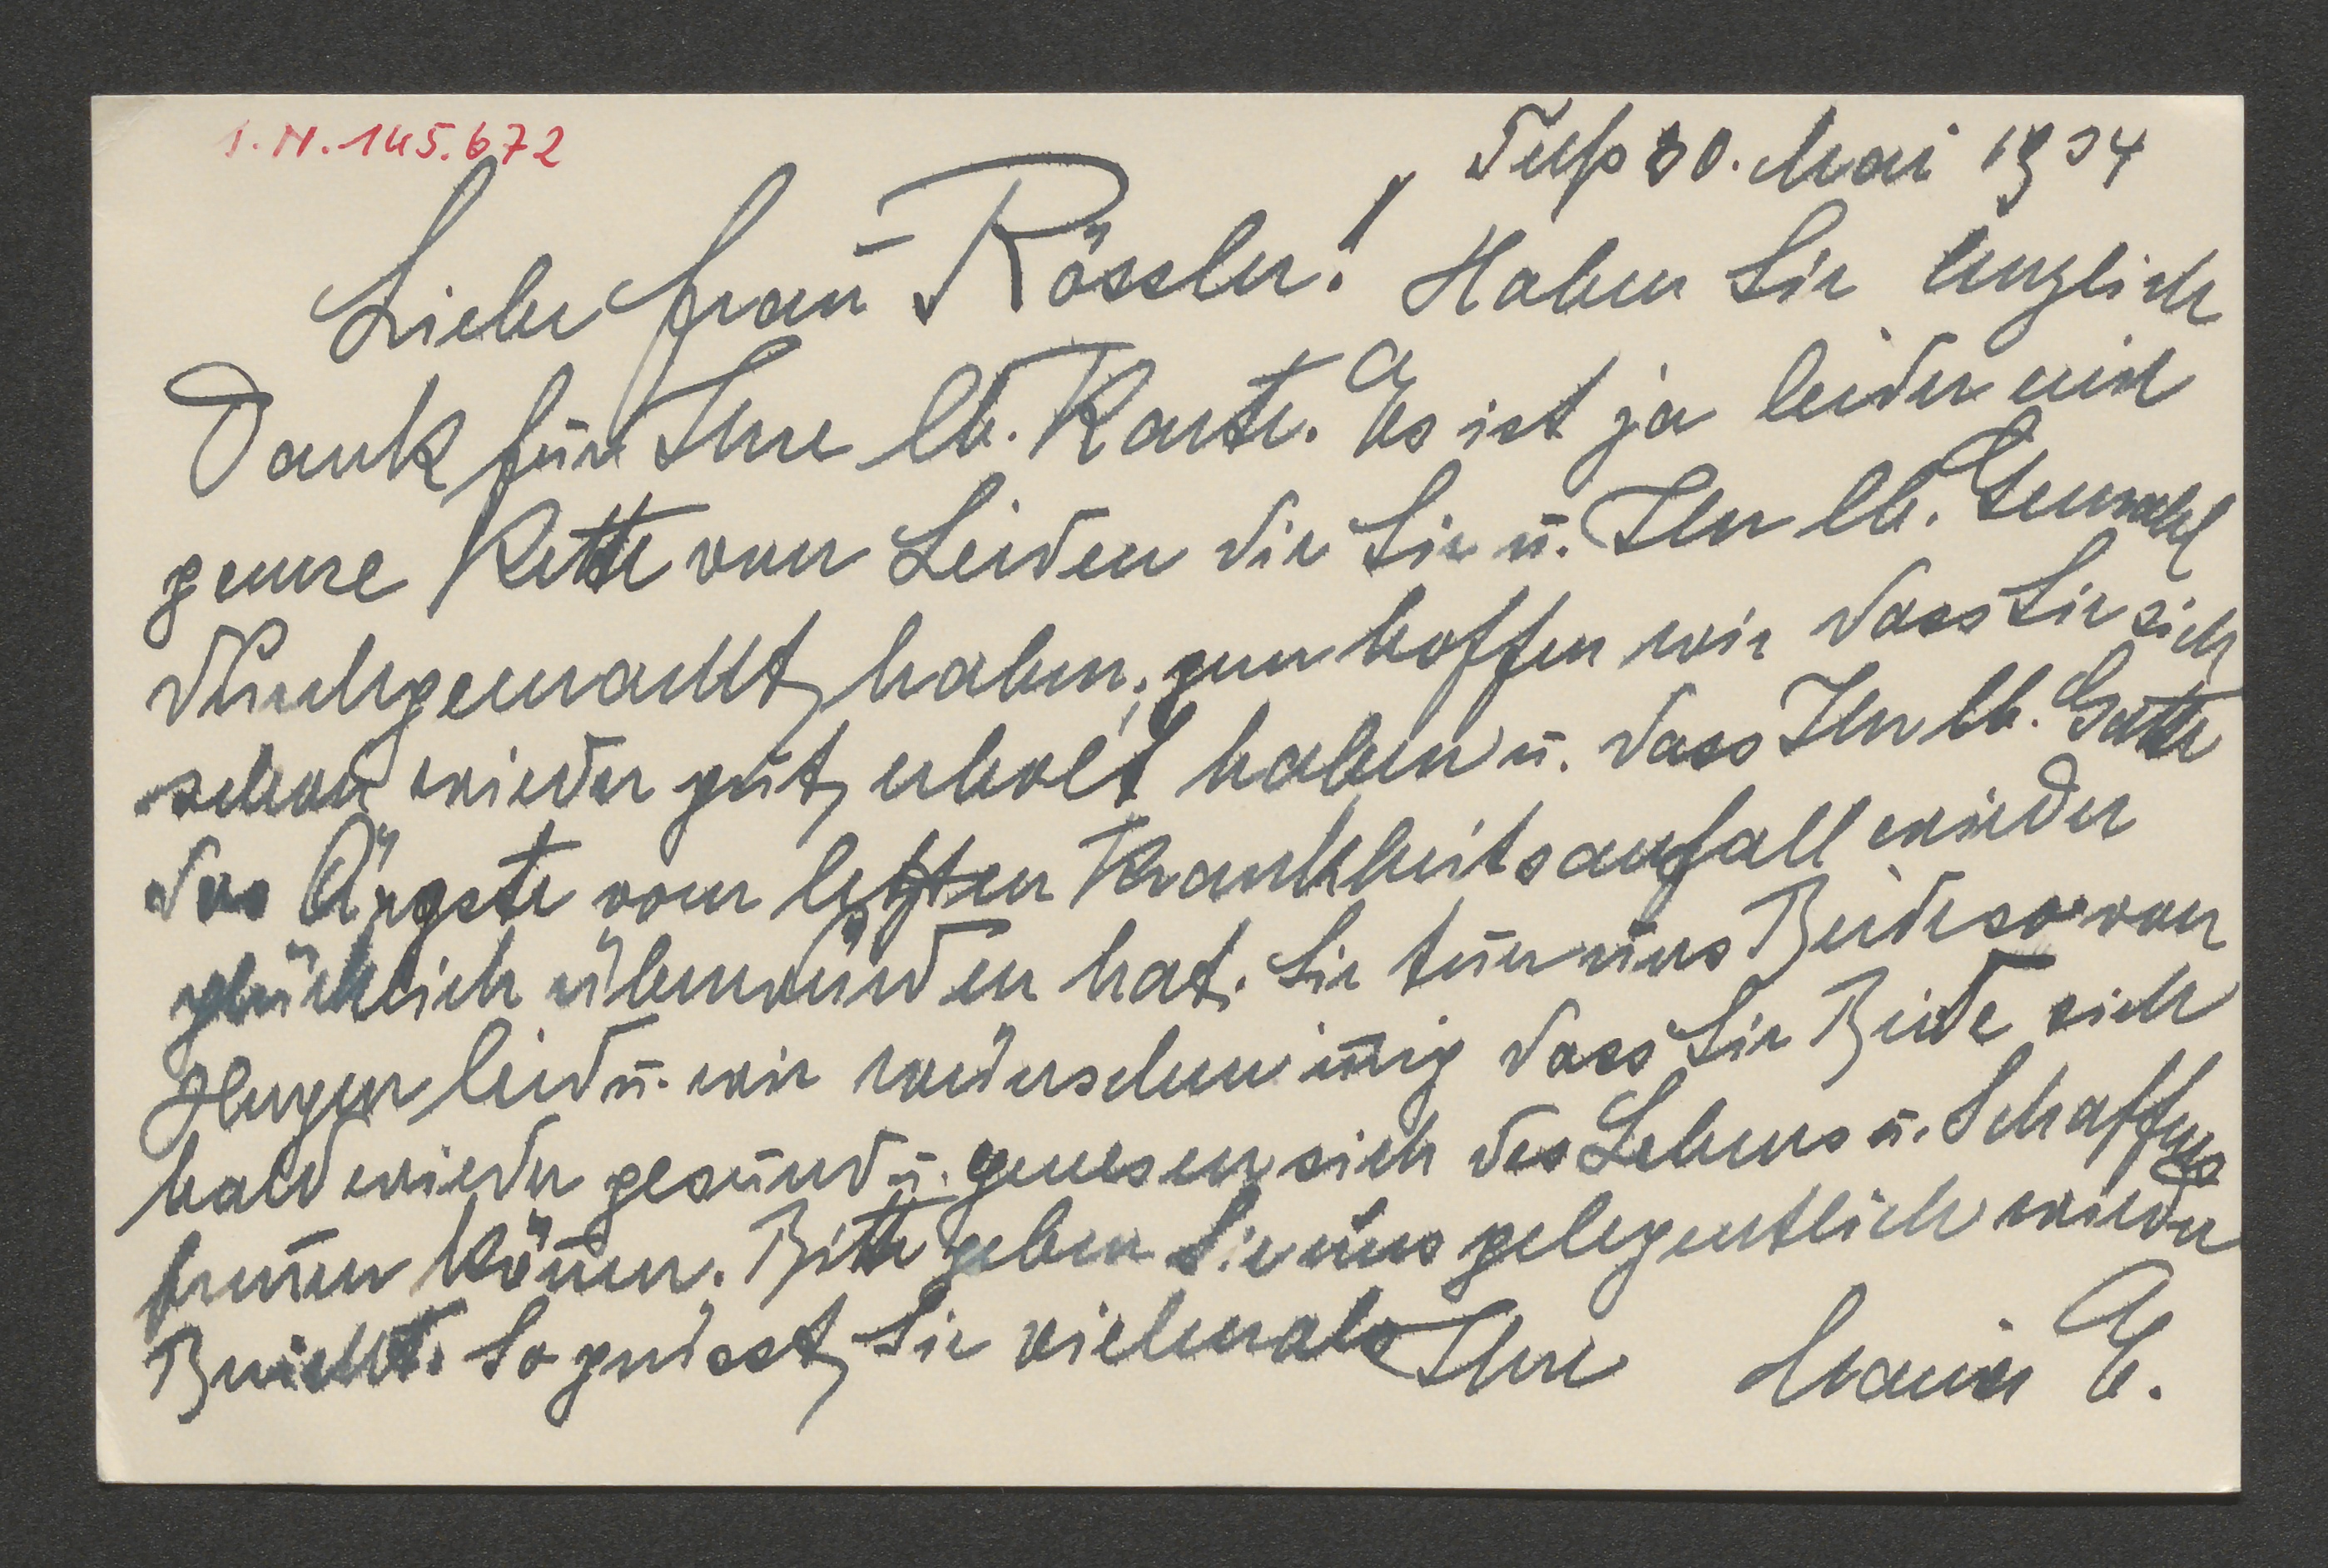 I.N. 145.672
Telfs 30. Mai 1934
Liebe Frau Rössler! Haben Sie herzlich
Dank für Ihre lb. Karte. Es ist ja leider eine
ganze Kette von Leiden die Sie u. Ihr lb. Gemahl
durchgemacht haben, nun hoffen wir dass Sie sich
schon wieder gut erholt haben u. dass Ihr lb. Gatte
das Ärgste vom letzten Krankheitsanfall wieder
glücklich überwunden hat. Sie tun uns Beide so von
Herzen leid u. wir wünschen innig dass Sie Beide sich
bald wieder gesund u. genesen sich des Lebens u. Schaffens
freuen können. Bitte geben Sie uns gelegentlich wieder
Bericht. So grüsst Sie vielmals Ihre Maria E.